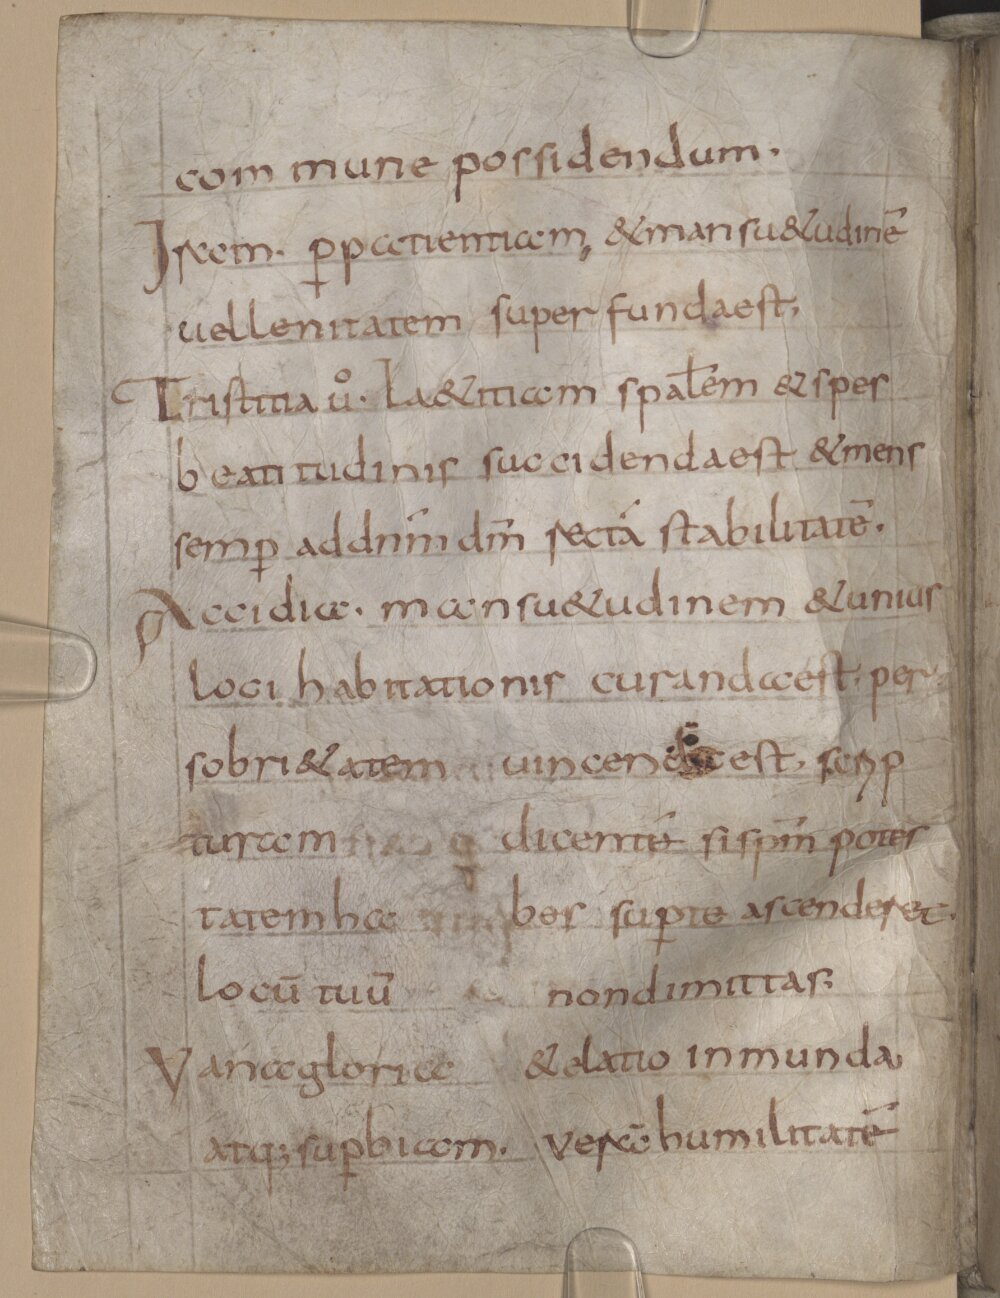 commune possidendum.
Iram. p̱ pacientiam, & mansu&udinē
uel lenitatem superfundaest,
Tristitia ů. la&itiam spałem & spes
beatitudinis succidendaest & mens
semꝑ ad dn̄m dm̄ recta stabilitatē.
Accidia. mansu&udinem & unius
loci habitationis curandaest, per
sobri&atem uincendaest, scrip
turam dicentē si spm̄ potes
tatem ha bes suꝑ te ascenderet.
locū tuū non dimittas;
Vana gloria & elatio inmunda
atq; suꝑbiam. verā humilitatē